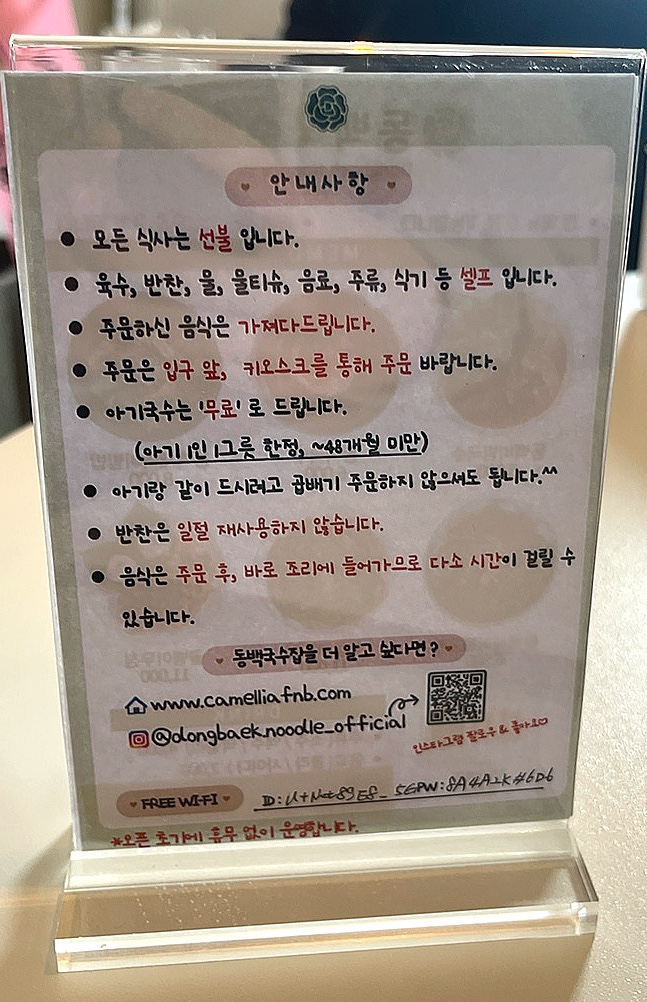 안내사항
모든 식사는 선불 입니다.
육수, 반찬, 물, 물티슈, 음료, 주류, 식기 등 셀프 입니다.
주문하신 음식은 가져다드립니다.
주문은 입구 앞, 키오스크를 통해 주문 바랍니다.
아기국수는 '무료' 로 드립니다.
(아기 1인 1그릇 한정, ~48개월 미만)
아기랑 같이 드시려고 곱배기 주문하지 않으셔도 됩니다.^^
반찬은 일절 재사용하지 않습니다.
음식은 주문 후, 바로 조리에 들어가므로 다소 시간이 걸릴 수
있습니다.
동백국수집을 더 알고 싶다면?
www.camelliafnb.com
@dongbaek.noodle_official
인스타그램 팔로우 & 좋아요♡
FREE WI-FI ID: U+Net89E8_5G PW: 8A4A2K#6D6
*오픈 초기에 휴무 없이 운영합니다.